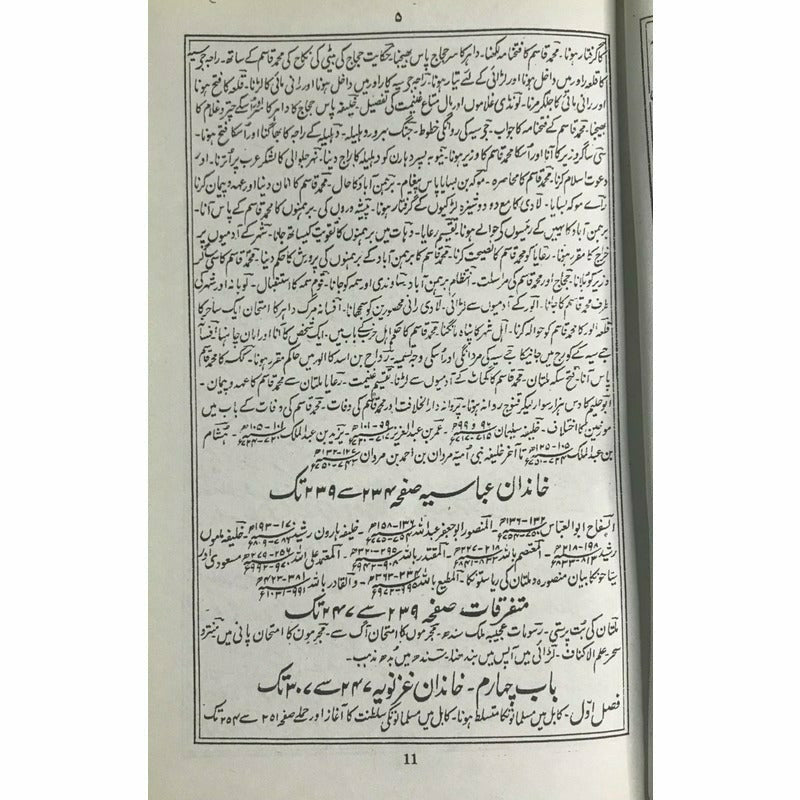 ۵
کا گرفتار ہونا۔ محمد قاسم کا فتحنامہ لکھنا۔ داہر کا سر حجاج پاس بھیجنا۔ حکایت حجاج کی بیٹی کی نکاح کی محمد قاسم کے ساتھ۔ راجہ جے سیہ
کا قلعہ راور میں داخل ہونا اور لڑائی کے لئے تیار ہونا۔ راجہ جے سیہ کا راور میں داخل ہونا اور رانی مائی کا لڑنا۔ قلعہ کا فتح ہونا
اور رانی مائی کا جلکر مرنا۔ لونڈی غلاموں اور مال متاع غنیمت کی تفصیل۔ خلیفہ پاس حجاج کا داہر کا سر چتر و غلام کا
بھیجنا۔ محمد قاسم کے فتحنامہ کا جواب۔ جے سیہ کی روانگی خطوط۔ جنگ بہرور و دہلیلہ۔ دہلیلہ کے راجہ کا بھاگنا اور اُسکا فتح ہونا۔
سی ساگر وزیر کا آنا اور اُسکا محمد قاسم کا وزیر ہونا۔ نیوبہ پسر دہارن کو دہلیلہ کا راج دینا۔ نہر جلوالی کا لشکر عرب پر اُترنا۔ اور
دعوت اسلام کرنا۔ محمد قاسم کا محاصرہ۔ موکہ بن بسایا پاس پیغام۔ برہمن آباد کا حال۔ محمد قاسم کا امان دینا اور عہد و پیمان کرنا
رائے موکہ بسایا۔ لادی کا مع دو دوشیزہ لڑکیوں کے گرفتار ہونا۔ پیشہ وروں کی۔ برہمنوں کا محمد قاسم کے پاس آنا۔
برہمن آباد کا نہیں رئیسوں کی حوالے ہونا۔ تقسیم رعایا۔ دہات میں برہمنوں کا تقویت کیساتھ جانا۔ شہر کے آدمیوں پر
خراج کا مقرر ہونا۔ رعایا کو محمد قاسم کا نصیحت کرنا۔ محمد قاسم کا برہمن آباد کے برہمنوں کی پرورش کا حکم دینا۔ محمد قاسم کا سی ساگر
وزیر کو بلانا۔ حجاج اور محمد قاسم کی مراسلت۔ انتظام برہمن آباد۔ ساوندی اور سمہ کو جانا۔ قوم سمہ کا استقبال۔ لوہانہ اور شہر کی
طرف محمد قاسم کا جانا۔ الور کے آدمیوں سے لڑائی۔ لادی رانی محصورین کو سمجھانا۔ افسانہ مرگ داہر کا امتحان ایک ساحرہ کا
قلعہ الور کا محمد قاسم کو حوالہ کرنا۔ اہل شہر کا پناہ مانگنا۔ محمد قاسم کا حکم اہل حرب کے باب میں۔ ایک شخص کا آنا اور امان چاہنا۔
جے سیہ کے کورج میں جانا جے سیہ کی مردانگی اور اُسکی وجہ تسمیہ۔ رواح بن اسد کا الور میں حاکم مقرر ہونا۔ ککہ کا محمد قاسم
پاس آنا۔ فتح سکہ ملتان۔ محمد قاسم کا گھاٹ کے آدمیوں سے لڑنا۔ تقسیم غنیمت۔ رعایا ملتان سے محمد قاسم کا عہد و پیمان۔
ابو حلیم کا دس ہزار سوار لیکر قنوج روانہ ہونا۔ پروانہ دار الخلافت اور محمد قاسم کی وفات۔ محمد قاسم کی وفات کے باب میں
مورخین کا اختلاف۔ خلیفہ سلیمان ۹۶ و ۹۹ھ ۷۱۵-۷۱۷ء۔ عمر بن عبد العزیز ۹۹-۱۰۱ھ ۷۱۷-۷۲۰ء۔ یزید بن عبد الملک ۱۰۱-۱۰۵ھ ۷۲۰-۷۲۴ء۔ ہشام
بن عبد الملک ۱۰۵-۱۲۵ھ ۷۲۴-۷۴۳ء تا آخر خلیفہ بنی اُمیہ مروان بن احمد بن مروان ۱۲۶-۱۳۲ھ ۷۴۴-۷۵۰ء
خاندان عباسیہ صفحہ ۲۳۴ سے ۲۳۹ تک
السفاح ابوالعباس ۱۳۲-۱۳۶ھ ۷۵۰-۷۵۴ء۔ المنصور ابوجعفر عبد اللہ ۱۳۶-۱۵۸ھ ۷۵۴-۷۷۵ء۔ خلیفہ ہارون رشید ۱۷۰-۱۹۳ھ ۷۸۶-۸۰۹ء۔ خلیفہ ماموں
رشید ۱۹۸-۲۱۸ھ ۸۱۳-۸۳۳ء۔ المعتصم باللہ ۲۱۸-۲۲۷ھ ۸۳۳-۸۴۱ء۔ المقتدر باللہ ۲۹۵-۳۲۰ھ ۹۰۸-۹۳۲ء۔ المعتمد علی اللہ ۲۵۶-۲۷۹ھ ۸۷۰-۸۹۲ء۔ مسعودی اور
سیاحونکا بیان منصورہ و ملتان کی ریاستو نکا۔ المطیع باللہ ۳۳۴-۳۶۳ھ ۹۴۵-۹۷۳ء۔ والقادر باللہ ۳۸۱-۴۲۲ھ ۹۹۱-۱۰۳۱ء
متفرقات صفحہ ۲۳۹ سے ۲۴۷ تک
ملتان کی بُت پرستی۔ رسومات عجیبہ ملک سندھ۔ مجرموں کا امتحان آگ سے۔ مجرموں کا امتحان پانی میں۔ منتر و
سحر علم الاکتاف۔ لڑائی میں آپس میں بندھنا۔ سندھ میں بُدھ مذہب۔
باب چہارم۔ خاندان غزنویہ ۲۴۷ سے ۳۰۷ تک
فصل اوّل۔ کابل میں مسلمانونکا متسلط ہونا۔ کابل میں مسلمانونکی سلطنت کا آغاز اور حملے صفحہ ۲۵۱ سے ۲۵۴ تک
11